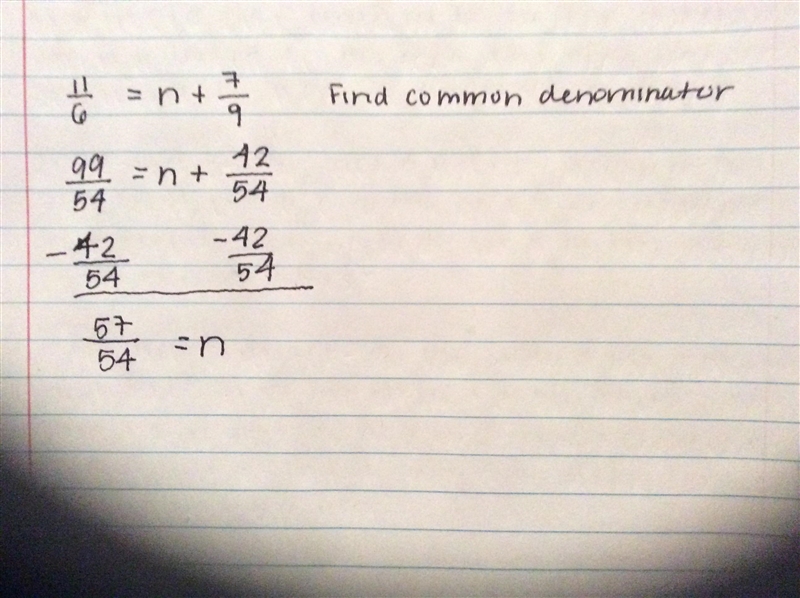 11/6 = n + 7/9 Find common denominator
99/54 = n + 42/54
- 42/54 - 42/54
57/54 = n